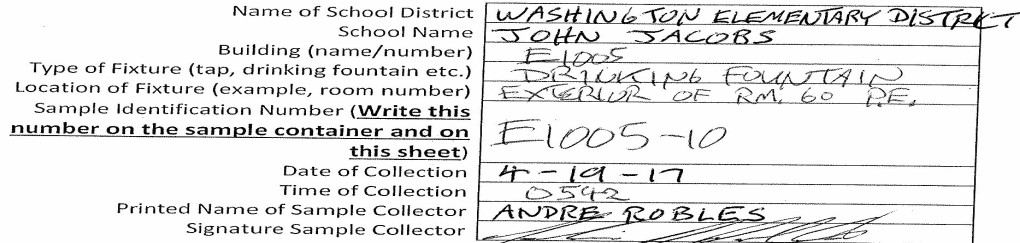 Name of School District WASHINGTON ELEMENTARY DISTRICT
School Name JOHN JACOBS
Building (name/number) E1005
Type of Fixture (tap, drinking fountain etc.) DRINKING FOUNTAIN
Location of Fixture (example, room number) EXTERIOR OF RM. 60 P.E.
Sample Identification Number (Write this
number on the sample container and on
this sheet) E1005-10
Date of Collection 4-19-17
Time of Collection 0542
Printed Name of Sample Collector ANDRE ROBLES
Signature Sample Collector